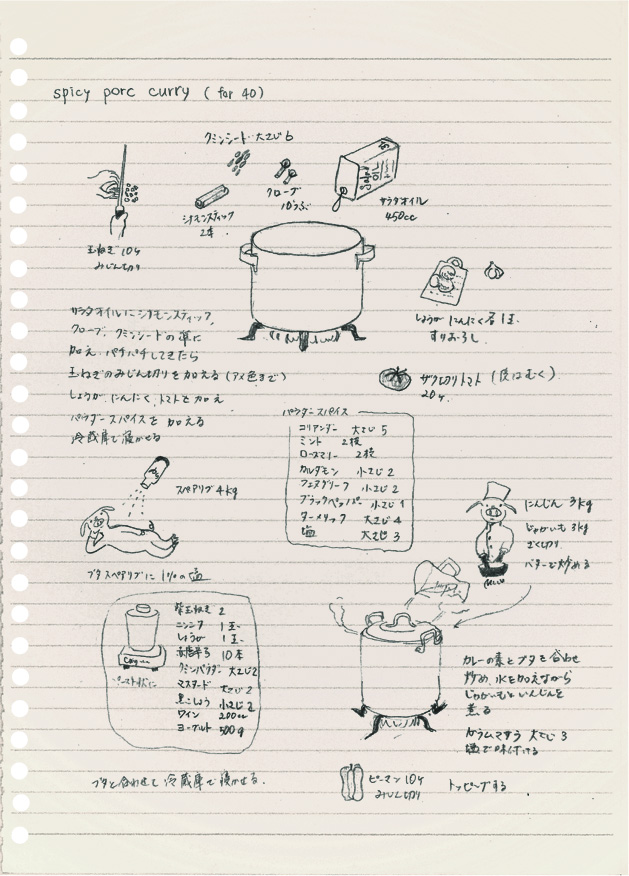 spicy porc curry ( for 40)
クミンシード 大さじ6
クローブ
10つぶ
シナモンスティック
2本
サラダオイル
450cc
玉ねぎ 10ヶ
みじん切り
しょうが にんにく 各1玉
すりおろし
サラダオイルにシナモンスティック
クローブ、クミンシードの順に
加え、パチパチしてきたら
玉ねぎのみじん切りを加える (アメ色まで)
しょうが、にんにく、トマトを加え
パウダースパイスを加える
冷蔵庫で寝かせる
ザク切りトマト (皮はむく)
20ヶ
パウダースパイス
コリアンダー 大さじ5
ミント 2枝
ローズマリー 2枝
カルダモン 小さじ2
フェヌグリーク 小さじ2
ブラックペッパー 小さじ1
ターメリック 大さじ4
塩 大さじ3
スペアリブ 4kg
ブタスペアリブに 1%の塩
にんじん 3kg
じゃがいも 3kg
ざく切り
バターで炒める
紫玉ねぎ 2
ニンニク 1玉
しょうが 1玉
赤唐辛子 10本
クミンパウダー 大さじ2
マスタード 大さじ2
黒こしょう 小さじ2
ワイン 200cc
ヨーグルト 500g
ペースト状に
ブタと合わせて冷蔵庫で寝かせる.
カレーの素とブタを合わせ
炒め、水を加えながら
じゃがいもとにんじんを
煮る
ガラムマサラ 大さじ3
塩で味付ける
ピーマン 10ヶ
みじん切り
トッピングする